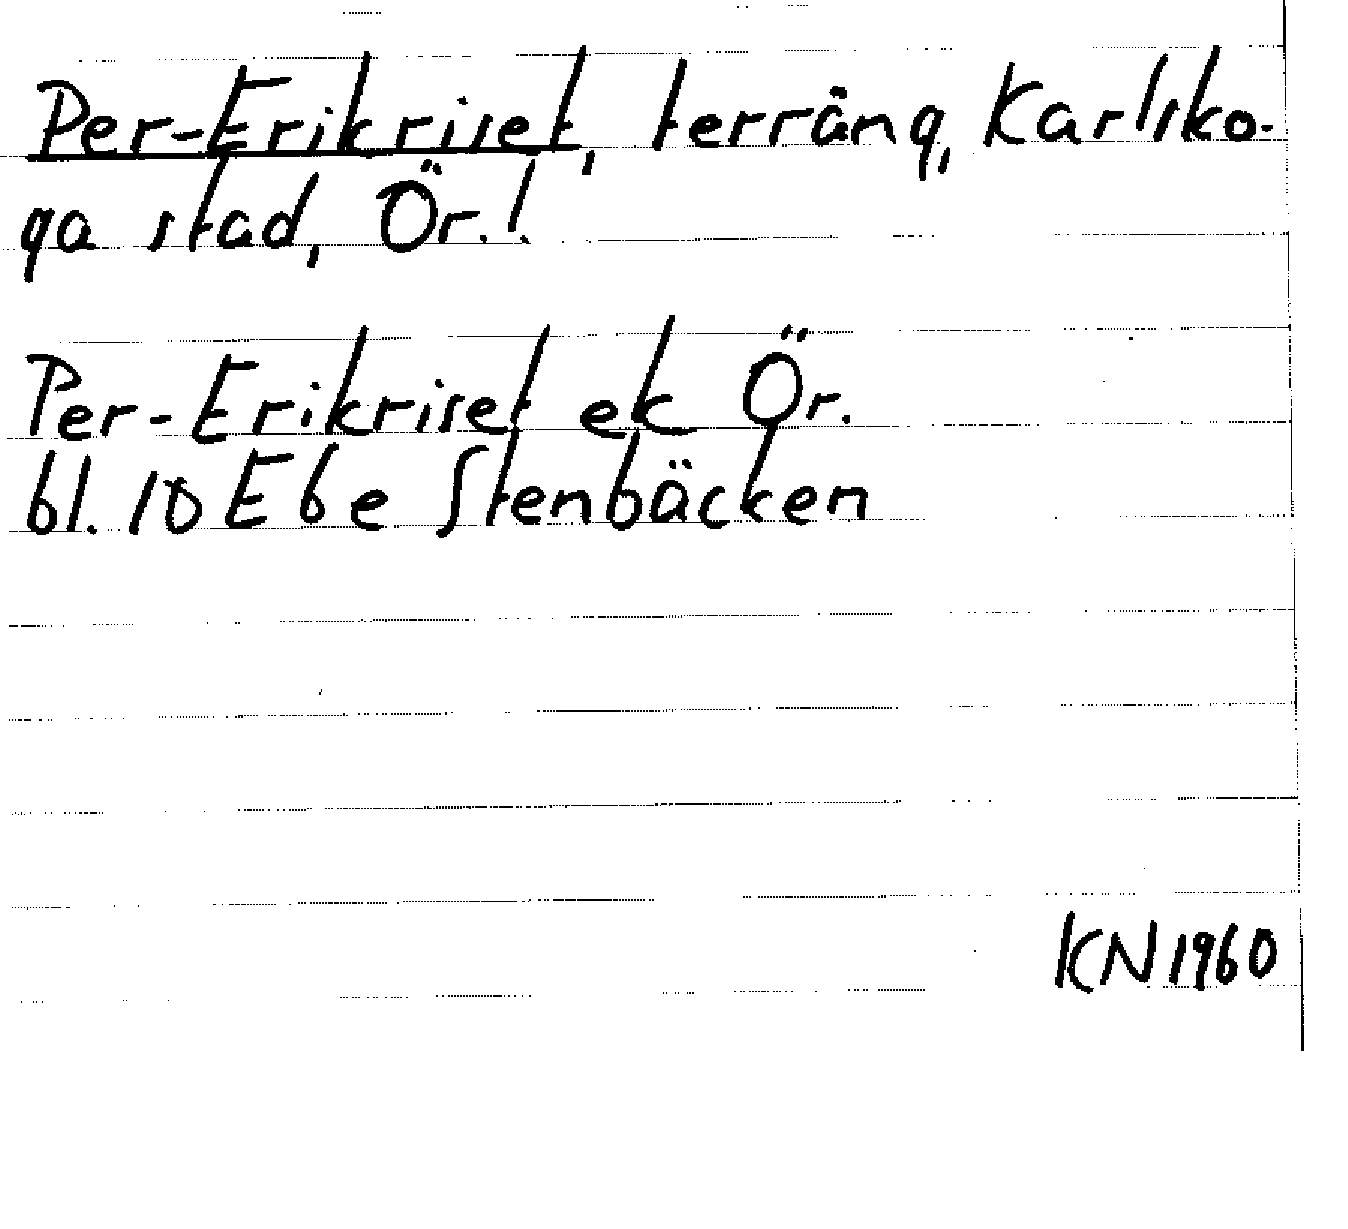 Per-Erikriset, terräng, Karlsko-
ga stad, Ör.!
Per-Erikriset ek Ör.
bl. 10 E 6 e Stenbäcken
KN 1960